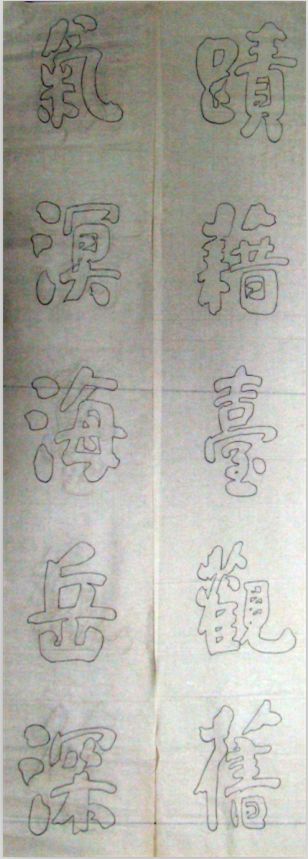 蹟藉臺觀舊
氣溟海岳深